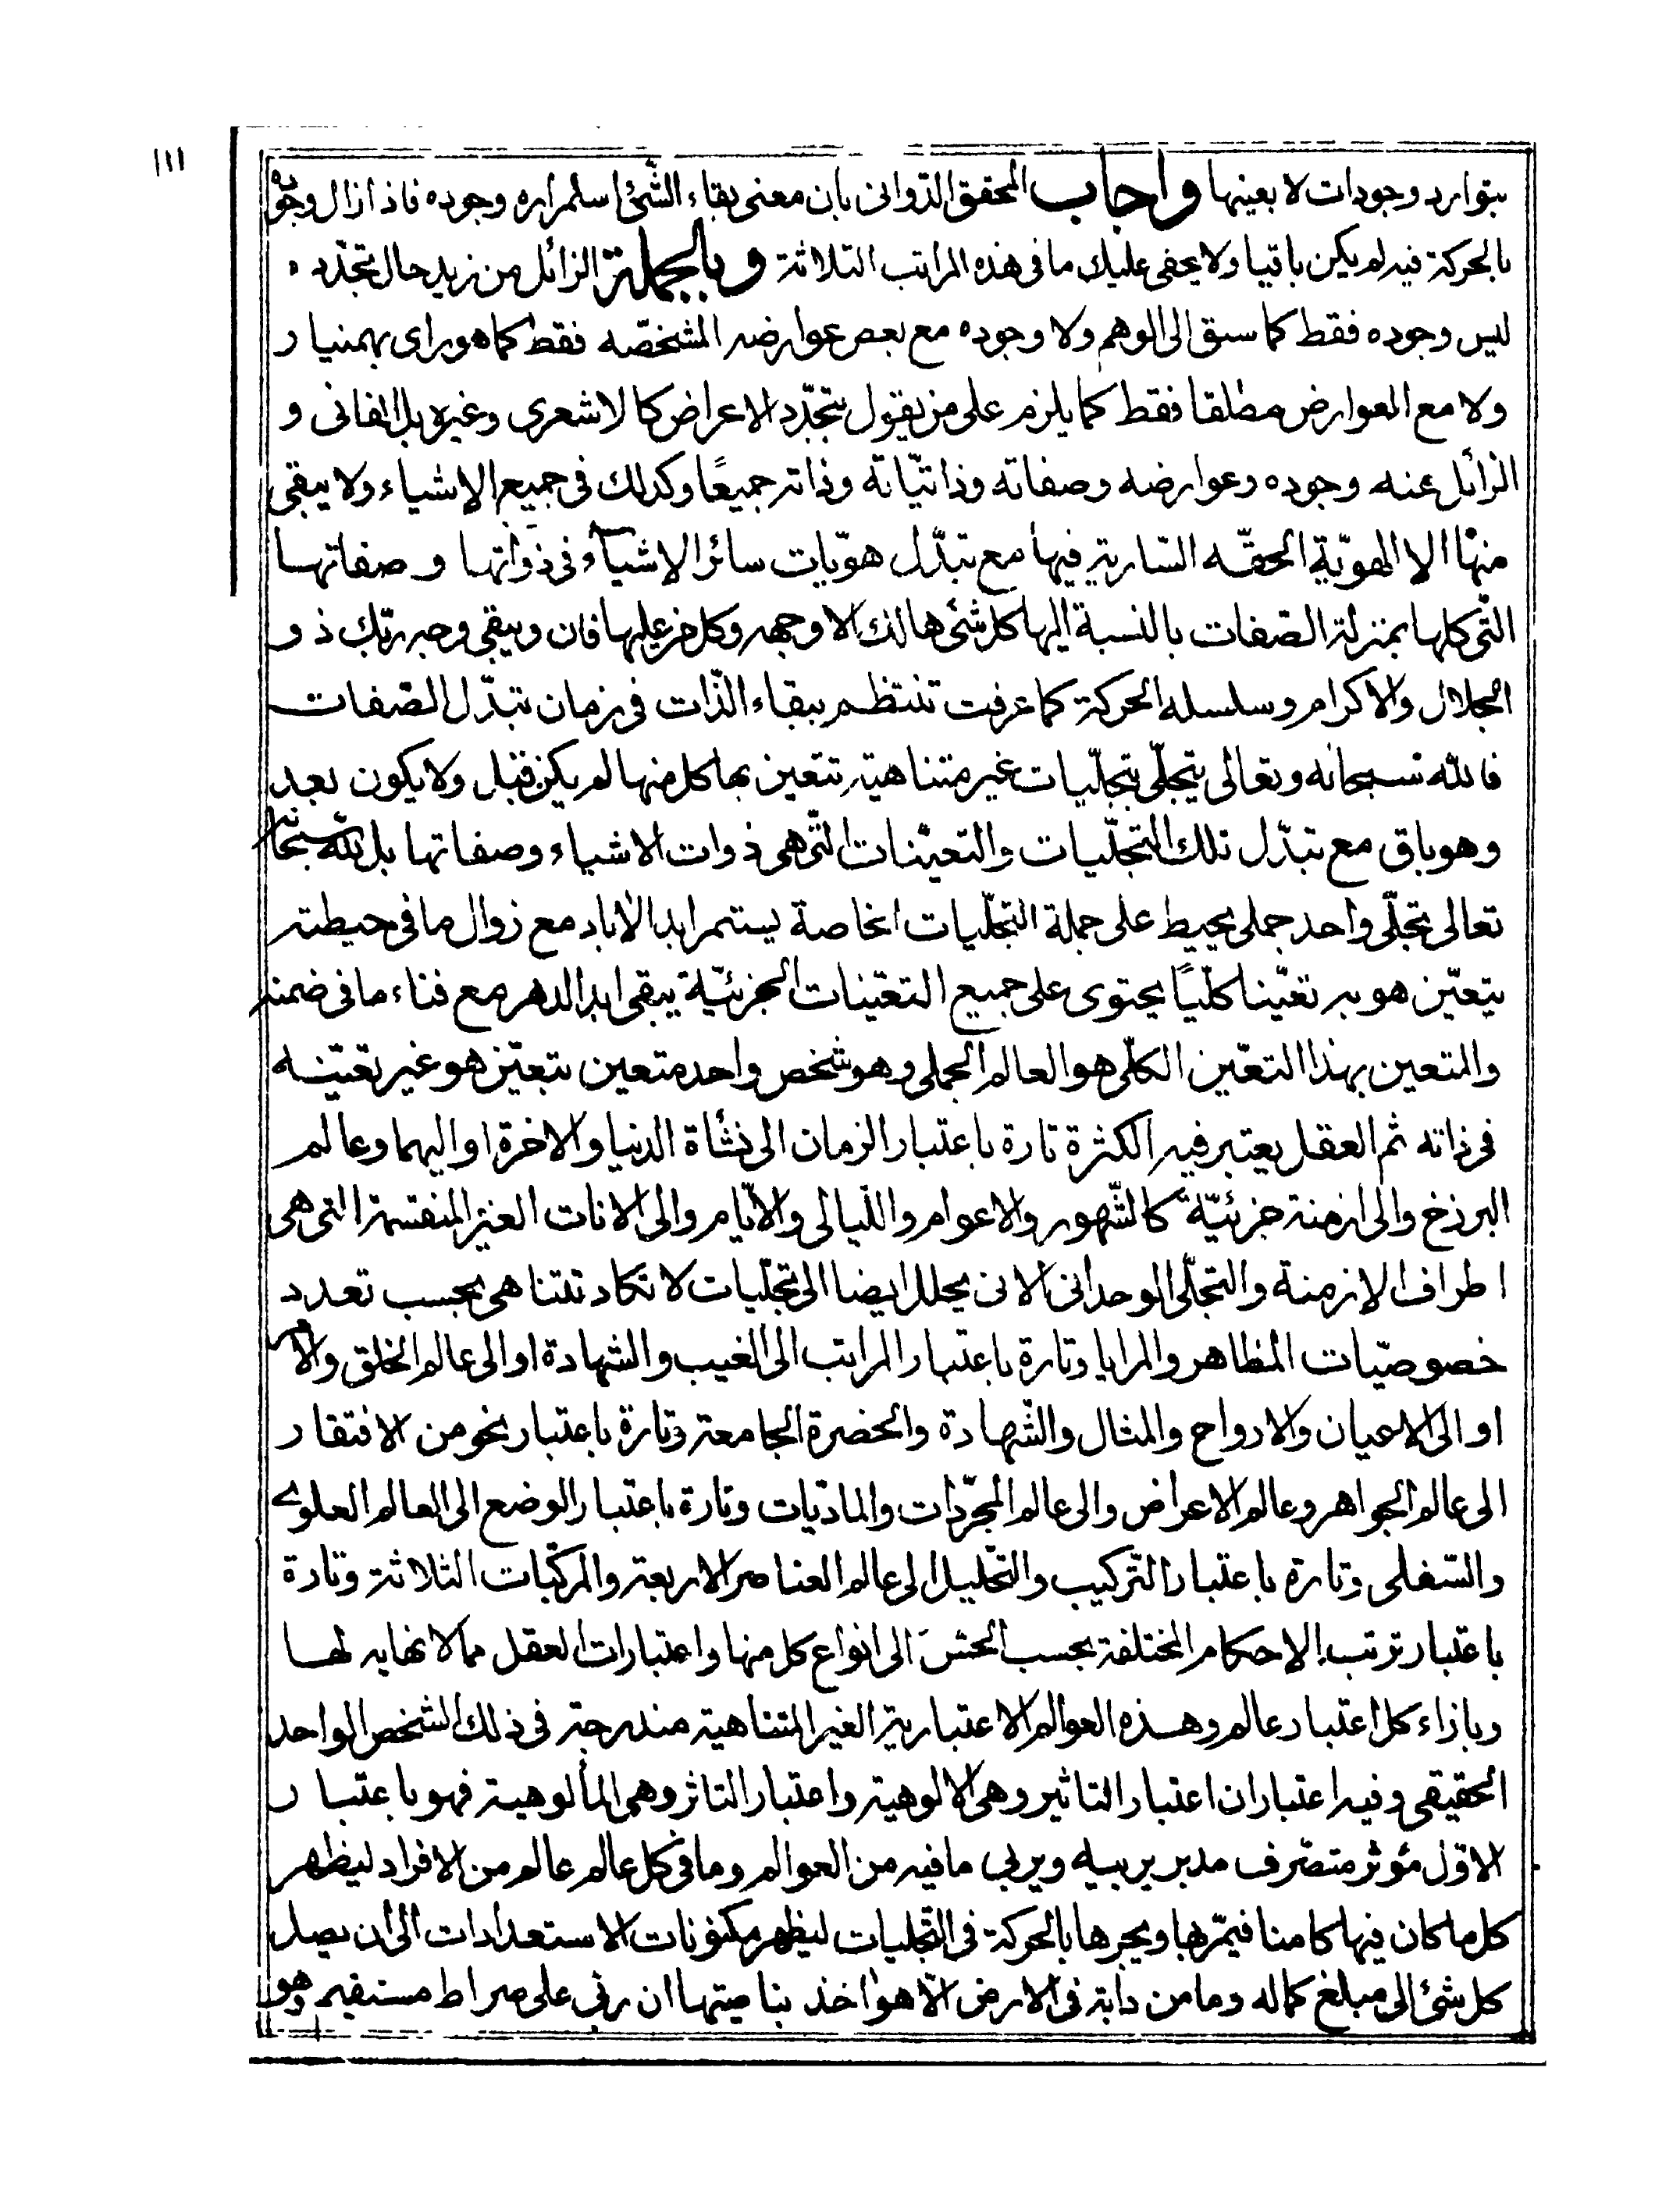 ١١١
بتوارد وجودات لا بعينها واجاب المحقق الدوانى بان معنى بقاء الشئ استمراره وجوده فاذا زال وجوده
بالحركة فيه لم يكن باقيا ولا يخفى عليك ما فى هذه المراتب الثلاثة وبالجملة الزائل من زيد حال تجدّده
ليس وجوده فقط كما سبق الى الوهم ولا وجوده مع بعض عوارضه المشخصّه فقط كما هو راى بهمنيار
ولا مع العوارض مطلقا فقط كما يلزم على من يقول بتجدّد الاعراض كالاشعرى وغيره بل الفانى و
الزائل عنه وجوده وعوارضه وصفاته وذاتيّاته وذاته جميعًا وكذلك فى جميع الاشياء ولا يبقى
منها الا الهويّة الحقّه السّارية فيها مع تبدّل هويّات سائر الاشياء فى ذواتها و صفاتها
التّى كلها بمنزلة الصّفات بالنسبة اليها كل شئ هالك الا وجهه وكل من عليها فان ويبقى وجه ربّك ذو
الجلال والاكرام وسلسله الحركة كما عرفت تنتظم ببقاء الذّات فى زمان تبدّل الصّفات
فالله سبحانه وتعالى يتجلّى بتجلّيات غير متناهية تتعين بها كل منها لم يكن قبل ولا يكون بعد
وهو باق مع تبدّل تلك التجلّيات والتعيّنات التّى هى ذوات الاشياء وصفاتها بل لله سبحانه
تعالى تجلّى واحد جملى يحيط على جملة التجلّيات الخاصة يستمر ابد الاباد مع زوال ما فى حيطته
يتعيّن هو به تعيّنا كلّيًا يحتوى على جميع التعيّنات الجزئيّة يبقى ابد الدهر مع فناء ما فى ضمنه
والمتعين بهذا التعيّن الكلّى هو العالم الجملى وهو شخص واحد متعين بتعيّن هو غير تعيّنه
فى ذاته ثم العقل يعتبر فيه الكثرة تارة باعتبار الزمان الى نشأة الدنيا والاخرة او اليهما وعالم
البرزخ والى ازمنة جزئيّة كالشّهور والاعوام والليالى والايّام والى الانات الغير المنقسمة التى هى
اطراف الازمنة والتجلّى الوحدانى الانى يحلل ايضا الى تجلّيات لا تكاد تتناهى بحسب تعدد
خصوصيّات المظاهر والمرايا وتارة باعتبار المراتب الى الغيب والشهادة او الى عالم الخلق والامر
او الى الاعيان والارواح والمثال والشّهادة والحضرة الجامعة وتارة باعتبار نحو من الافتقار
الى عالم الجواهر وعالم الاعراض والى عالم المجرّدات والماديّات وتارة باعتبار الوضع الى العالم العلوى
والسّفلى وتارة باعتبار التّركيب والتّحليل الى عالم العناصر الاربعة والمركّبات الثلاثة وتارة
باعتبار ترتب الاحكام المختلفة بحسب الحسّ الى انواع كل منها واعتبارات العقل مما لا نهايه لها
وبازاء كل اعتبار عالم وهذه العوالم الاعتبارية الغير المتناهية مندرجة فى ذلك الشخص الواحد
الحقيقى وفيه اعتباران اعتبار التاثير وهى الالوهية واعتبار التاثر وهى المألوهية فهو باعتبار
الاوّل مؤثر متصّرف مدبر يربيه ويربى ما فيه من العوالم وما فى كل عالم عالم من الافراد ليظهر
كل ما كان فيها كامنا فيمّرها ويجرها بالحركة فى التّجليات ليظهر مكنونات الاستعدادات الى ان يصل
كل شئ الى مبلغ كماله وما من دابة فى الارض الّا هو اخذ بناصيتها ان ربّى على صراط مستقيم وهو